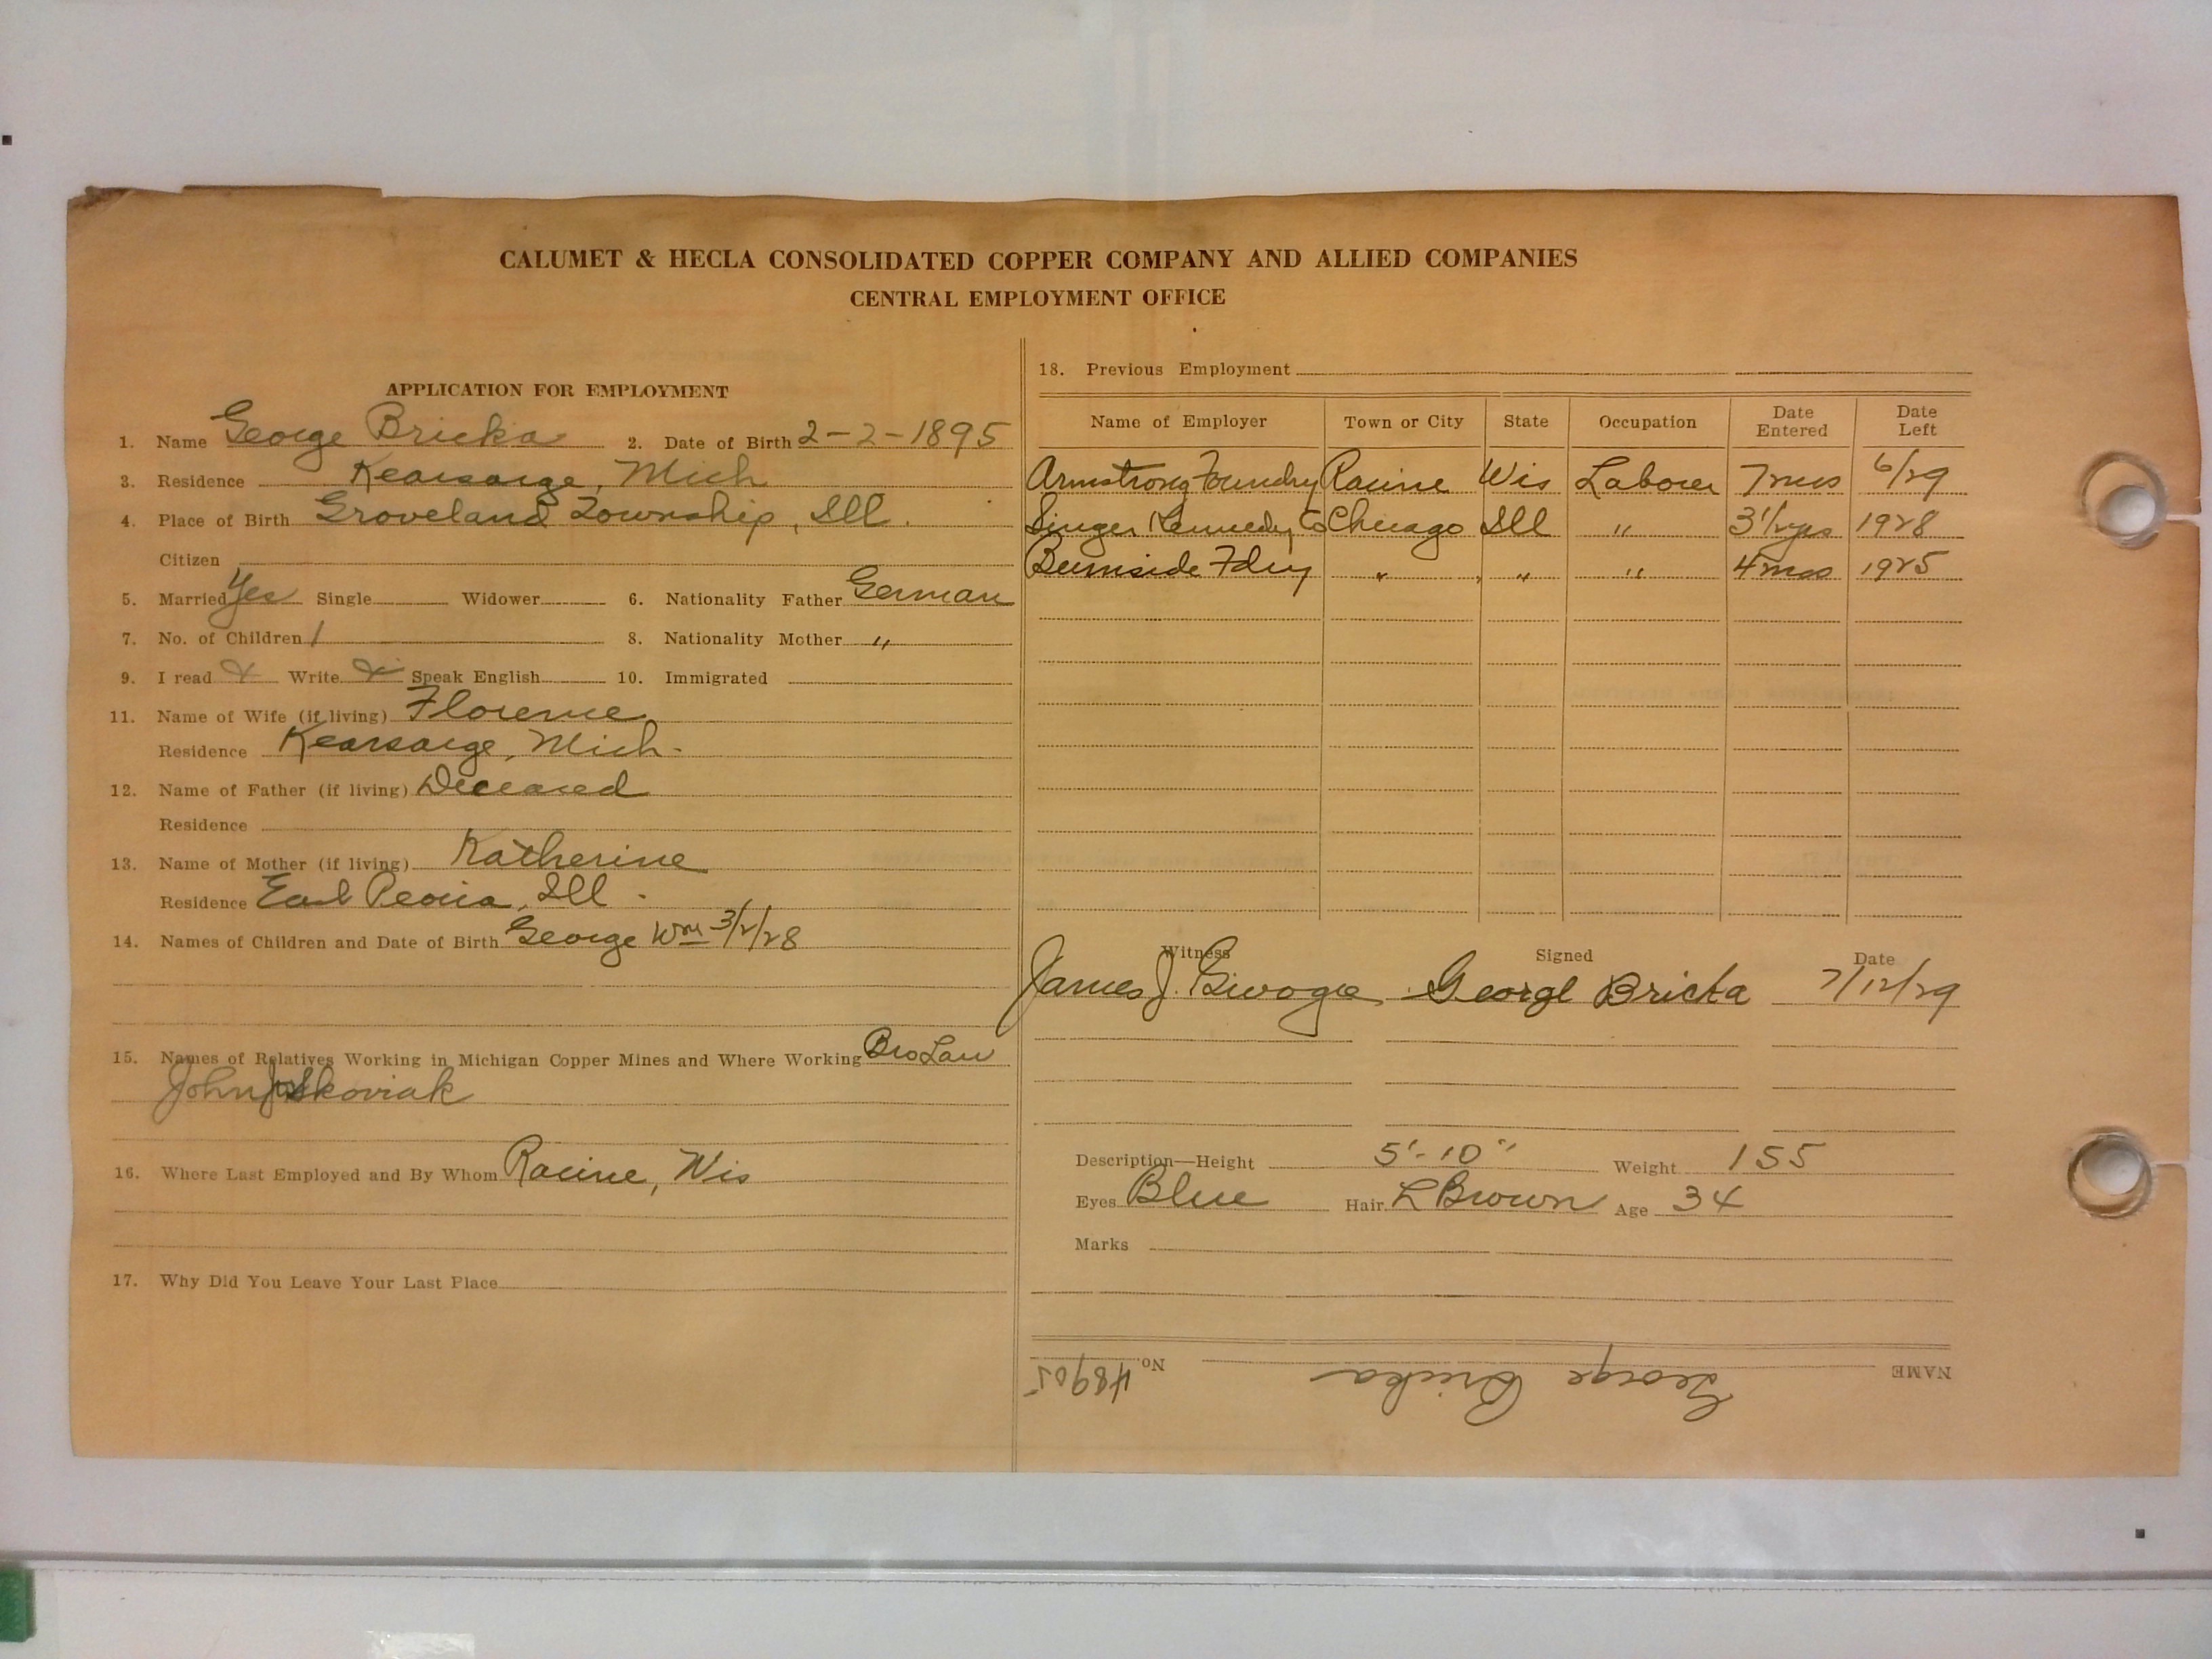 CALUMET & HECLA CONSOLIDATED COPPER COMPANY AND ALLIED COMPANIES
CENTRAL EMPLOYMENT OFFICE
APPLICATION FOR EMPLOYMENT
1. Name George Bricka 2. Date of Birth 2-2-1895
3. Residence Kearsarge, Mich
4. Place of Birth Groveland Township, Ill.
Citizen
5. Married Yes Single Widower 6. Nationality Father German
7. No. of Children 1 8. Nationality Mother "
9. I read Write Speak English 10. Immigrated
11. Name of Wife (if living) Florence
Residence Kearsarge, Mich.
12. Name of Father (if living) Deceased
Residence
13. Name of Mother (if living) Katherine
Residence East Peoria, Ill.
14. Names of Children and Date of Birth George Wm 3/2/28
15. Names of Relatives Working in Michigan Copper Mines and Where Working Bro Law
John Skoviak
16. Where Last Employed and By Whom Racine, Wis
17. Why Did You Leave Your Last Place
18. Previous Employment
Name of Employer Town or City State Occupation Date Entered Date Left
Armstrong Foundry Racine Wis Laborer 7 mos 6/29
Singer Kennedy Co Chicago Ill " 3 1/2 yrs 1928
Burnside Fdry " " " 4 mos 1925
Witness Signed Date
James J. George Bricka 7/12/29
Description—Height 5'-10" Weight 155
Eyes Blue Hair L Brown Age 34
Marks
NAME George Bricka No. 48905